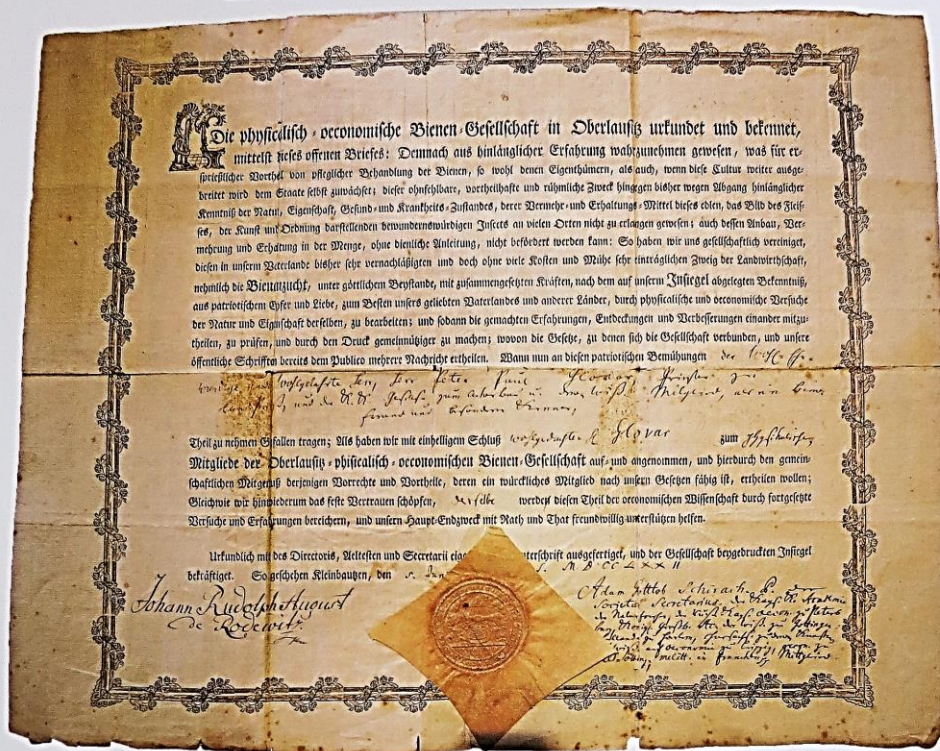 Die physicalisch-oeconomische Bienen-Gesellschaft in Oberlausitz urkundet und bekennet,
mittelst dieses offenen Briefes: Demnach aus hinlänglicher Erfahrung wahrzunehmen gewesen, was für er-
sprießlicher Vortheil von pfleglicher Behandlung der Bienen, so wohl denen Eigenthümern, als auch, wenn diese Cultur weiter ausge-
breitet wird dem Staate selbst zuwächset; dieser ohnfehlbare, vortheilhafte und rühmliche Zweck hingegen bisher wegen Abgang hinlänglicher
Kenntniß der Natur, Eigenschaft, Gesund- und Krankheits-Zustandes, derer Vermehr- und Erhaltungs-Mittel dieses edlen, das Bild des Fleis-
ses, der Kunst und Ordnung darstellenden bewundernswürdigen Insects an vielen Orten nicht zu erlangen gewesen; auch dessen Anbau, Ver-
mehrung und Erhaltung in der Menge, ohne dienliche Anleitung, nicht befördert werden kann: So haben wir uns gesellschaftlich vereiniget,
diesen in unserm Vaterlande bisher sehr vernachläßigten und doch ohne viele Kosten und Mühe sehr einträglichen Zweig der Landwirthschaft,
nehmlich die Bienenzucht, unter göttlichem Beystande, mit zusammengesetzten Kräften, nach dem auf unserm Insiegel abgelegten Bekenntniß,
aus patriotischem Eyfer und Liebe, zum Besten unsers geliebten Vaterlandes und anderer Länder, durch physicalische und oeconomische Versuche
der Natur und Eigenschaft derselben, zu bearbeiten; und sodann die gemachten Erfahrungen, Entdeckungen und Verbesserungen einander mitzu-
theilen, zu prüfen, und durch den Druck gemeinnütziger zu machen; wovon die Gesetze, zu denen sich die Gesellschaft verbunden, und unsere
öffentliche Schriften bereits dem Publico mehrere Nachricht ertheilen. Wann nun an diesen patriotischen Bemühungen der
Herr Peter Paul Glovar Priester
und der K. K. zum Ackerbau Mitglied,
Kenner,
Theil zu nehmen Gefallen tragen; Als haben wir mit einhelligem Schluß Glovar zum
Mitgliede der Oberlausitz-phisicalisch-oeconomischen Bienen-Gesellschaft auf- und angenommen, und hierdurch den gemein-
schaftlichen Mitgenuß derjenigen Vorrechte und Vortheile, deren ein würckliches Mitglied nach unsern Gesetzen fähig ist, ertheilen wollen;
Gleichwie wir hinwiederum das feste Vertrauen schöpfen, derselbe werden diesen Theil der oeconomischen Wissenschaft durch fortgesetzte
Versuche und Erfahrungen bereichern, und unsern Haupt-Endzweck mit Rath und That freundwillig unterstützen helfen.
Urkundlich mit des Directoris, Aeltesten und Secretarii unterschrift ausgefertiget, und der Gesellschaft beygedruckten Insiegel
bekräftiget. So geschehen Kleinbautzen, den MDCCLXXII
Johann Rudolph August
de Rodewitz
Adam Gottlob Schirach, P.
Societ. Secretarius, der Kays. Academie